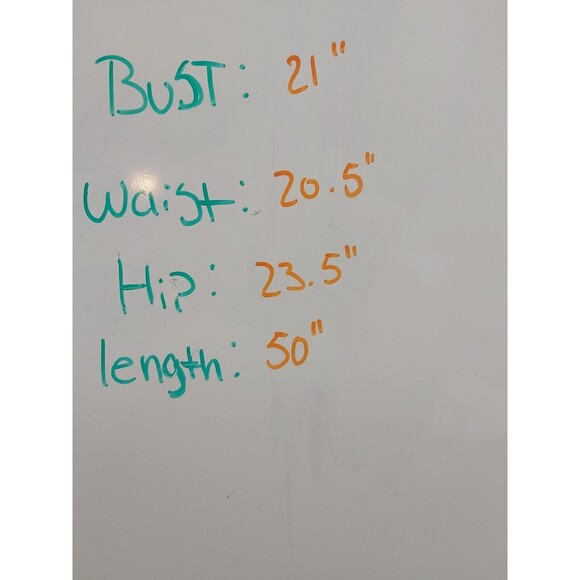 BUST: 21"
Waist: 20.5"
Hip: 23.5"
length: 50"